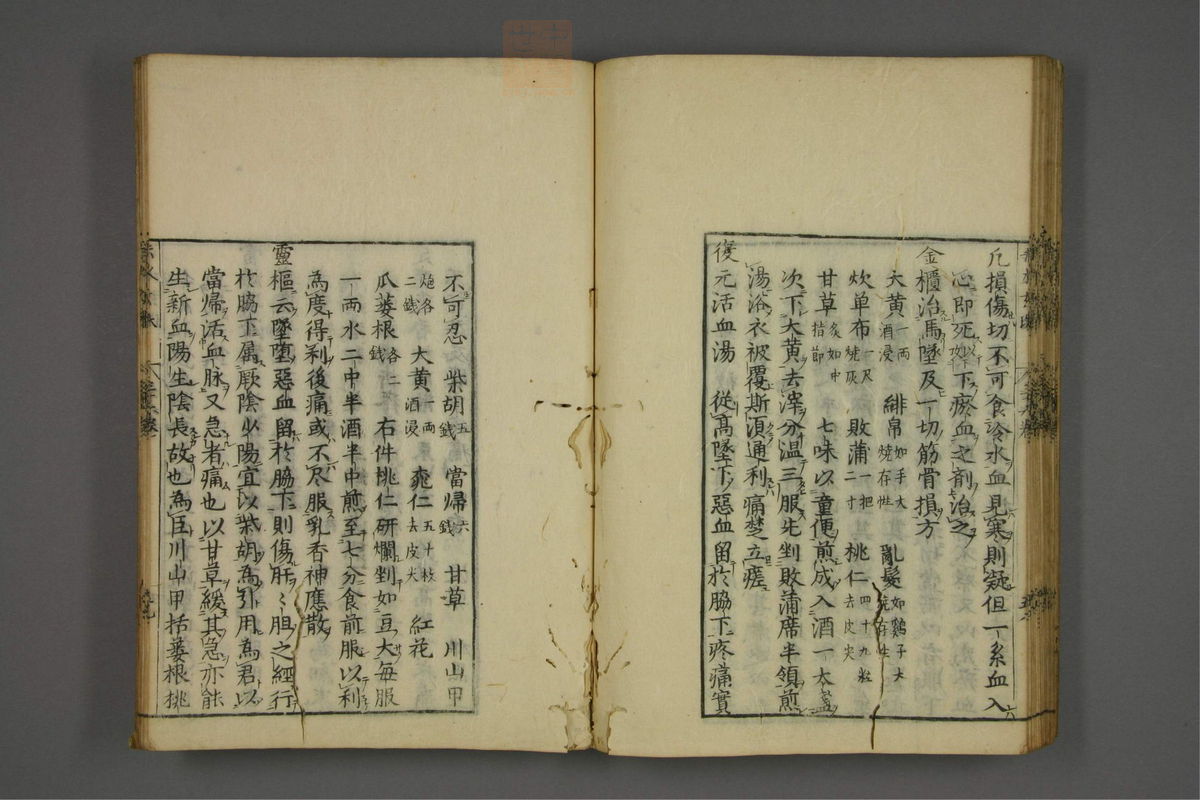 凡損傷切不可食冷水血見寒則凝但一糸血入
心即死以下瘀血之剤治之
金櫃治馬墜及一切筋骨損方
大黄一両酒浸 緋帛如手大焼存性 亂髮如鷄子大焼存生
炊单布一尺燒灰 敗蒲一把二寸 桃仁四十九粒去皮尖
甘草炙如中指節 右七味以童便煎成入酒一大盞
次下大黄去滓分温三服先剉敗蒲席半領煎
湯浴衣被覆斯須通利痛楚立瘥
復元活血湯 従髙墜下惡血留於脇下疼痛實
不可忍 柴胡五錢 當帰六錢 甘草 川山甲
炮各二錢 大黄一両酒浸 桃仁五十枚去皮尖 紅花
瓜蔞根各二錢 右件桃仁研爛剉如豆大每服
一両水二中半酒半中煎至七分食前服以利
為度得利後痛或不尽服乳香神應散
靈樞云墜堕惡血留於脇下則傷肝〻胆之經行
於脇下属厥陰少陽宜以柴胡為引用為君以
當帰活血脉又急者痛也以甘草緩其急亦能
生新血陽生陰長故也為臣川山甲括蔞根桃